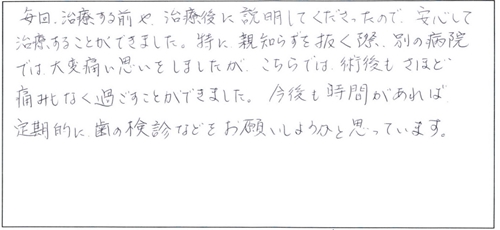 毎回、治療する前や、治療後に説明してくださったので、安心して
治療することができました。特に、親知らずを抜く際、別の病院
では、大変痛い思いをしましたが、こちらでは、術後もさほど
痛みもなく過ごすことができました。今後も時間があれば
定期的に、歯の検診などをお願いしようかと思っています。